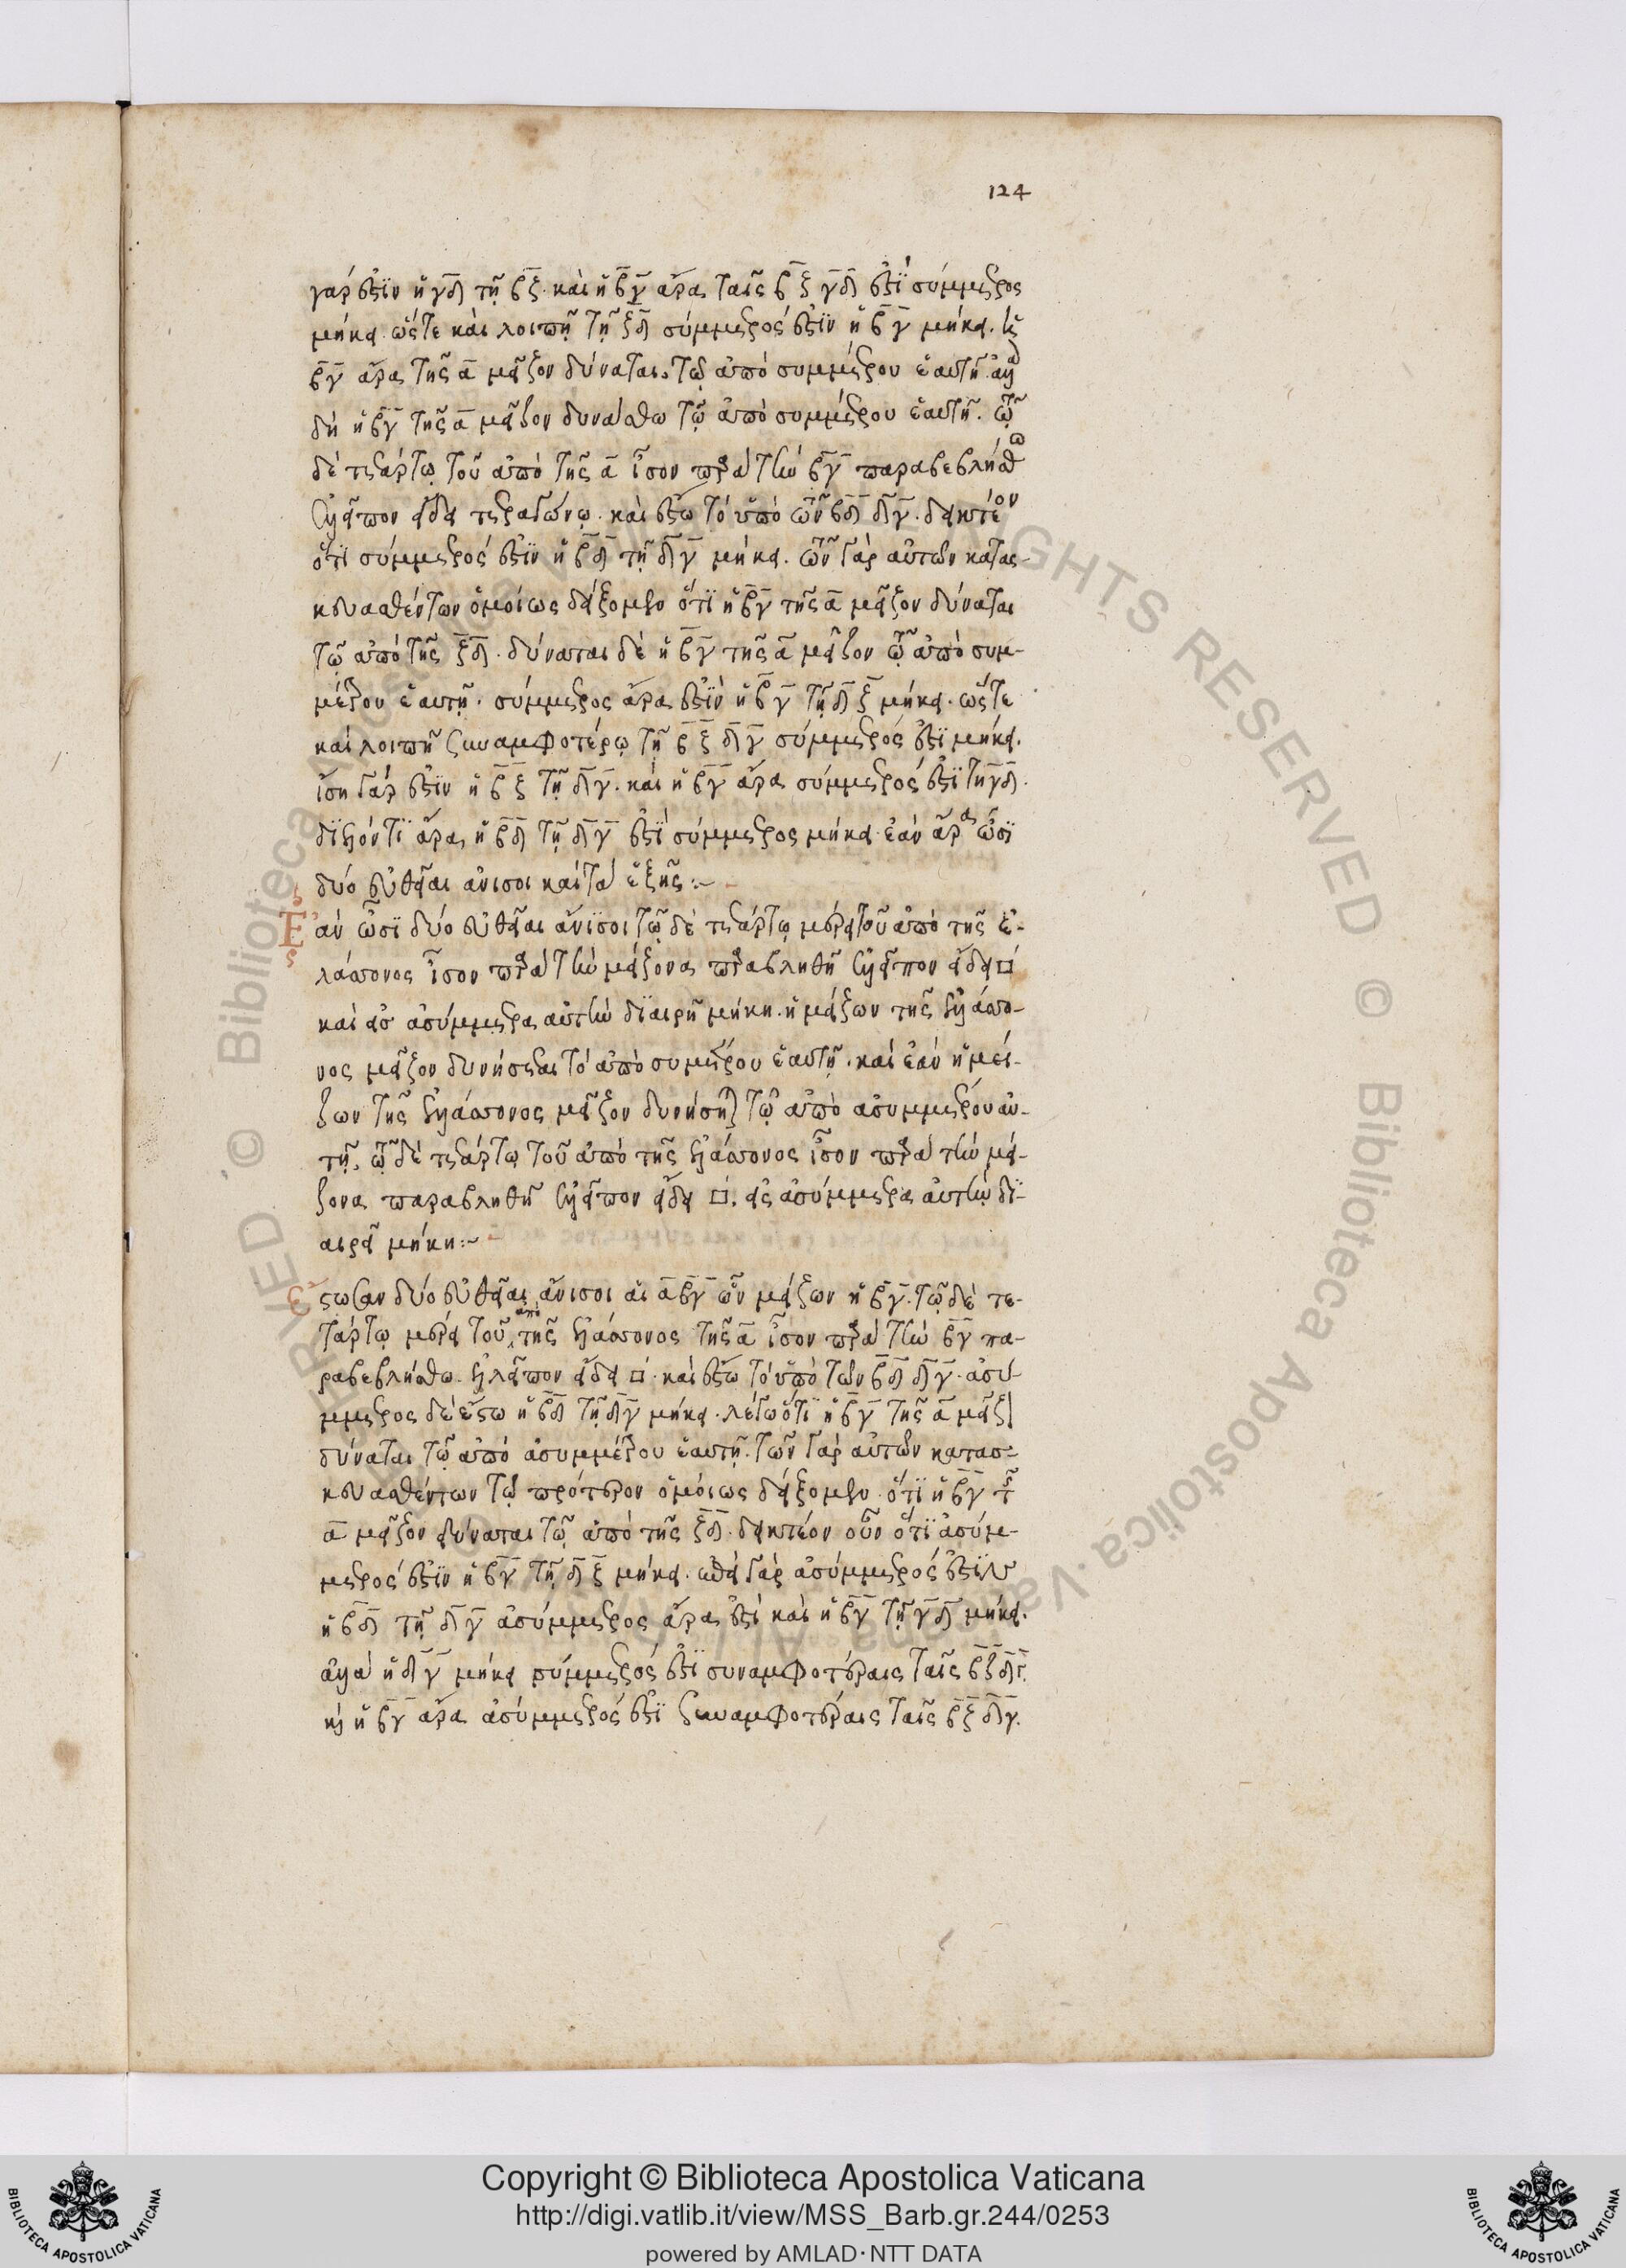 124
γάρ ἐστϊν ἡ γ̅δ̅ τῇ β̅ξ̅. καὶ ἡ β̅γ̅ ἄρα ταῖς β̅ξ̅ γ̅δ̅ ἐστϊ σύμμετρος
μήκει. ὥστε καὶ λοιπῇ τῇ ξ̅δ̅ σύμμετρός ἐστϊν ἡ β̅γ̅ μήκει. ἡ
β̅γ̅ ἄρα τῆς α̅ μεῖζον δύναται. τῷ ἀπὸ συμμέτρου ἑαυτῇ. ἀλλὰ
δὴ ἡ β̅γ̅ τῆς α̅ μεῖζον δυνάσθω τῷ ἀπὸ συμμέτρου ἑαυτῇ. τῷ
δὲ τετάρτῳ τοῦ ἀπὸ τῆς α̅ ἴσον παρὰ τὴν β̅γ̅ παραβεβλήσθω
ἐλλεῖπον εἴδει τετραγώνῳ. καὶ ἔστω τὸ ὑπὸ τῶν β̅δ̅ δ̅γ̅. δεικτέον
ὅτι σύμμετρός ἐστϊν ἡ β̅δ̅ τῇ δ̅γ̅ μήκει. τῶν γὰρ αὐτῶν κατασ-
κευασθέντων ὁμοίως δείξομεν ὅτϊ ἡ β̅γ̅ τῆς α̅ μεῖζον δύναται
τῷ ἀπὸ τῆς ξ̅δ̅. δύναται δὲ ἡ β̅γ̅ τῆς α̅ μεῖζον τῷ ἀπὸ συμ-
μέτρου ἑαυτῇ. σύμμετρος ἄρα ἐστϊν ἡ β̅γ̅ τῇ δ̅ξ̅ μήκει. ὥστε
καὶ λοιπῇ συναμφοτέρῳ τῇ β̅ξ̅ δ̅γ̅ σύμμετρός ἐστϊ μήκει.
ἴση γάρ ἐστϊν ἡ β̅ξ̅ τῇ δ̅γ̅. καὶ ἡ β̅γ̅ ἄρα σύμμετρός ἐστϊ τῇ γ̅δ̅.
δϊελόντϊ ἄρα ἡ β̅δ̅ τῇ δ̅γ̅ ἐστϊ σύμμετρος μήκει. ἐὰν ἄρα ὦσϊ
δύο εὐθεῖαι ἄνισοι καὶ τὰ ἑξῆς:~
Ἐὰν ὦσϊ δύο εὐθεῖαι ἄνϊσοι τῷ δὲ τετάρτῳ μέρει τοῦ ἀπὸ τῆς ἐ-
λάσσονος ἴσον παρὰ τὴν μείζονα παραβληθῇ ἐλλεῖπον εἴδει □
καὶ εἰς ἀσύμμετρα αὐτὴν δϊαιρῇ μήκη. ἡ μείζων τῆς ἐλάσσο-
νος μεῖζον δυνήσεται τὸ ἀπὸ συμμέτρου ἑαυτῇ. καὶ ἐὰν ἡ μεί-
ζων τῆς ἐλάσσονος μεῖζον δυνήσηται τῷ ἀπὸ ἀσυμμέτρου αὐ-
τῇ. τῷ δὲ τετάρτῳ τοῦ ἀπὸ τῆς ἐλάσσονος ἴσον παρὰ τὴν μεί-
ζονα παραβληθῇ ἐλλεῖπον εἴδει □. εἰς ἀσύμμετρα αὐτὴν δϊ-
αιρεῖ μήκη:~
Ἔστωσαν δύο εὐθεῖαι ἄνισοι αἱ α̅ β̅γ̅ ὧν μείζων ἡ β̅γ̅. τῷ δὲ τε-
τάρτῳ μέρει τοῦ ἀπὸ τῆς ἐλάσσονος τῆς α̅ ἴσον παρὰ τὴν β̅γ̅ πα-
ραβεβλήσθω. ἐλλεῖπον εἴδει □. καὶ ἔστω τὸ ὑπὸ τῶν β̅δ̅ δ̅γ̅. ἀσύ-
μμετρος δὲ ἔστω ἡ β̅δ̅ τῇ δ̅γ̅ μήκει. λέγω ὅτϊ ἡ β̅γ̅ τῆς α̅ μεῖζον
δύναται τῷ ἀπὸ ἀσυμμέτρου ἑαυτῇ. τῶν γὰρ αὐτῶν κατασ-
κευασθέντων τῷ πρότερον ὁμοίως δείξομεν. ὅτϊ ἡ β̅γ̅ τῆς
α̅ μεῖζον δύναται τῷ ἀπὸ τῆς ξ̅δ̅. δεικτέον οὖν ὅτϊ ἀσύμ-
μετρός ἐστϊν ἡ β̅γ̅ τῇ δ̅ξ̅ μήκει. ἐπεὶ γὰρ ἀσύμμετρός ἐστϊν
ἡ β̅δ̅ τῇ δ̅γ̅ ἀσύμμετρος ἄρα ἐστὶ καὶ ἡ β̅γ̅ τῇ γ̅δ̅ μήκει.
ἀλλὰ ἡ δ̅γ̅ μήκει σύμμετρός ἐστϊ συναμφοτέραις ταῖς β̅ξ̅ δ̅γ̅.
καὶ ἡ β̅γ̅ ἄρα ἀσύμμετρός ἐστϊ συναμφοτέραις ταῖς β̅ξ̅ δ̅γ̅.
Copyright © Biblioteca Apostolica Vaticana
http://digi.vatlib.it/view/MSS_Barb.gr.244/0253
powered by AMLAD·NTT DATA